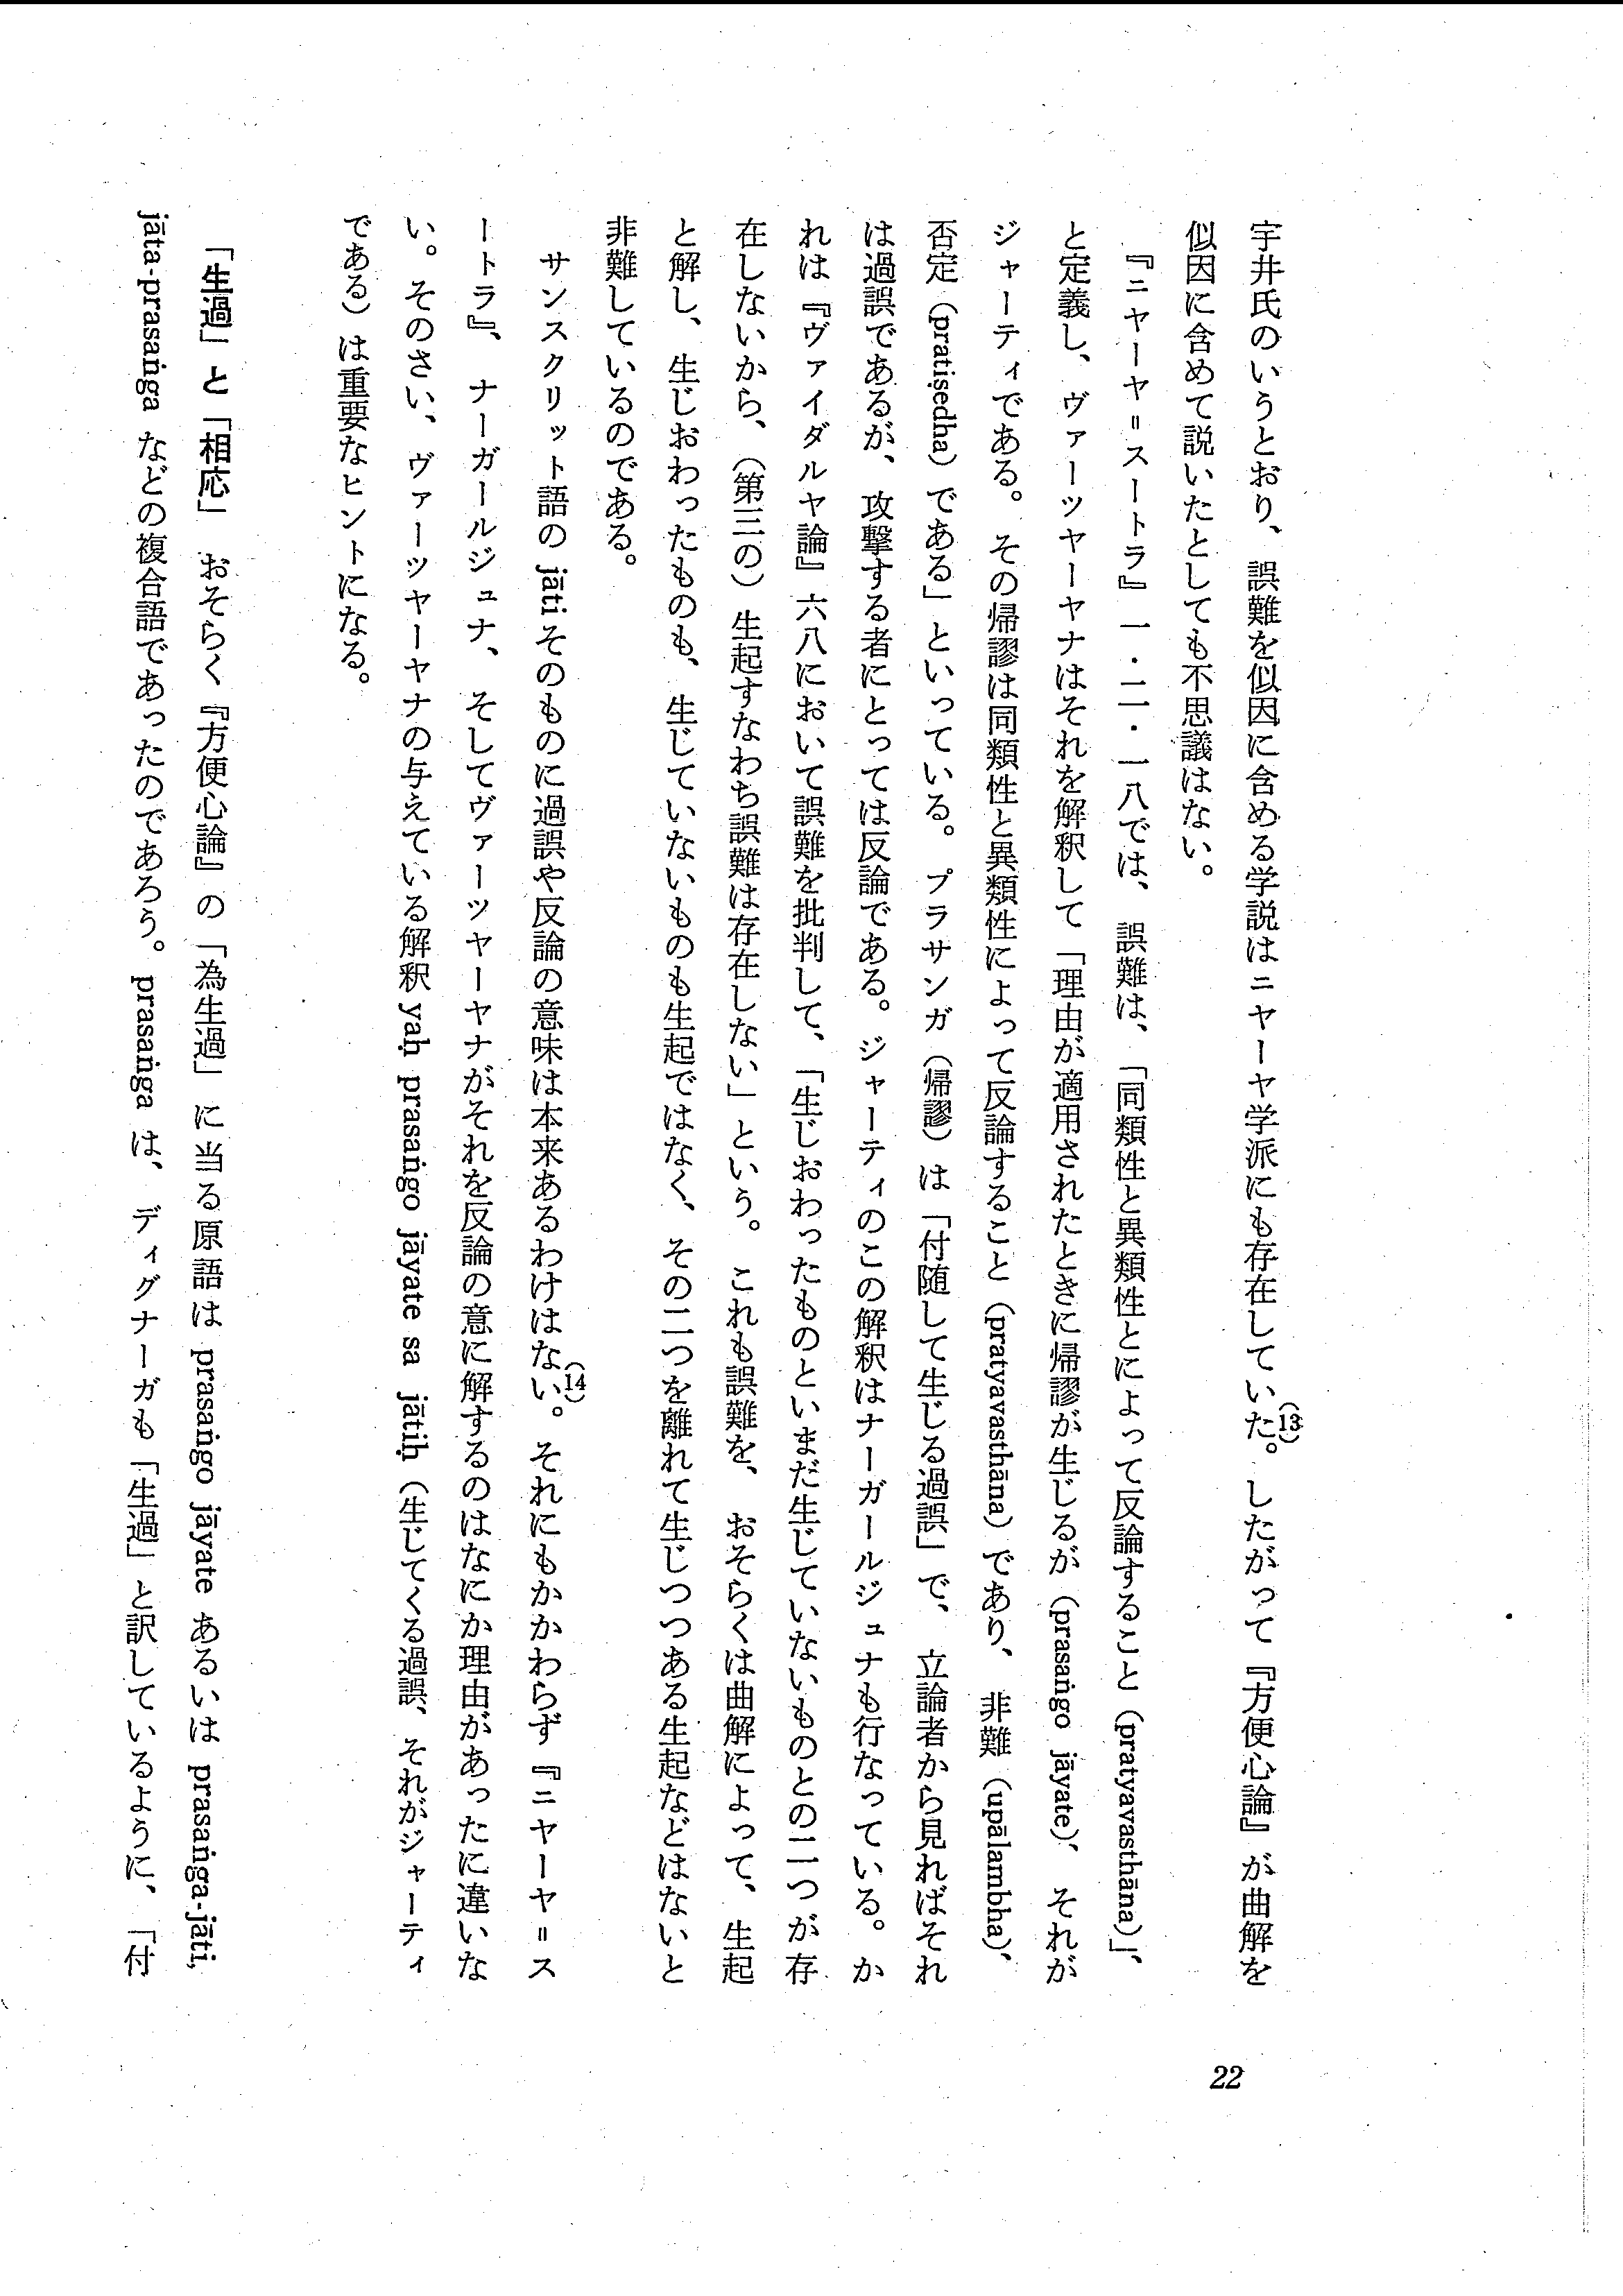 宇井氏のいうとおり、誤難を似因に含める学説はニヤーヤ学派にも存在していた。(13)したがって『方便心論』が曲解を
似因に含めて説いたとしても不思議はない。
『ニヤーヤ＝スートラ』一・二・一八では、誤難は、「同類性と異類性とによって反論すること（pratyavasthāna）」、
と定義し、ヴァーツヤーヤナはそれを解釈して「理由が適用されたときに帰謬が生じるが（prasaṅgo jāyate）、それが
ジャーティである。その帰謬は同類性と異類性によって反論すること（pratyavasthāna）であり、非難（upālambha）、
否定（pratiṣedha）である」といっている。プラサンガ（帰謬）は「付随して生じる過誤」で、立論者から見ればそれ
は過誤であるが、攻撃する者にとっては反論である。ジャーティのこの解釈はナーガールジュナも行なっている。か
れは『ヴァイダルヤ論』六八において誤難を批判して、「生じおわったものといまだ生じていないものとの二つが存
在しないから、（第三の）生起すなわち誤難は存在しない」という。これも誤難を、おそらくは曲解によって、生起
と解し、生じおわったものも、生じていないものも生起ではなく、その二つを離れて生じつつある生起などはないと
非難しているのである。
サンスクリット語の jāti そのものに過誤や反論の意味は本来あるわけはない。(14)それにもかかわらず『ニヤーヤ＝ス
ートラ』、ナーガールジュナ、そしてヴァーツヤーヤナがそれを反論の意に解するのはなにか理由があったに違いな
い。そのさい、ヴァーツヤーヤナの与えている解釈 yaḥ prasaṅgo jāyate sa jātiḥ（生じてくる過誤、それがジャーティ
である）は重要なヒントになる。
「生過」と「相応」 おそらく『方便心論』の「為生過」に当る原語は prasaṅgo jāyate あるいは prasaṅga-jāti,
jāta-prasaṅga などの複合語であったのであろう。prasaṅga は、ディグナーガも「生過」と訳しているように、「付
22